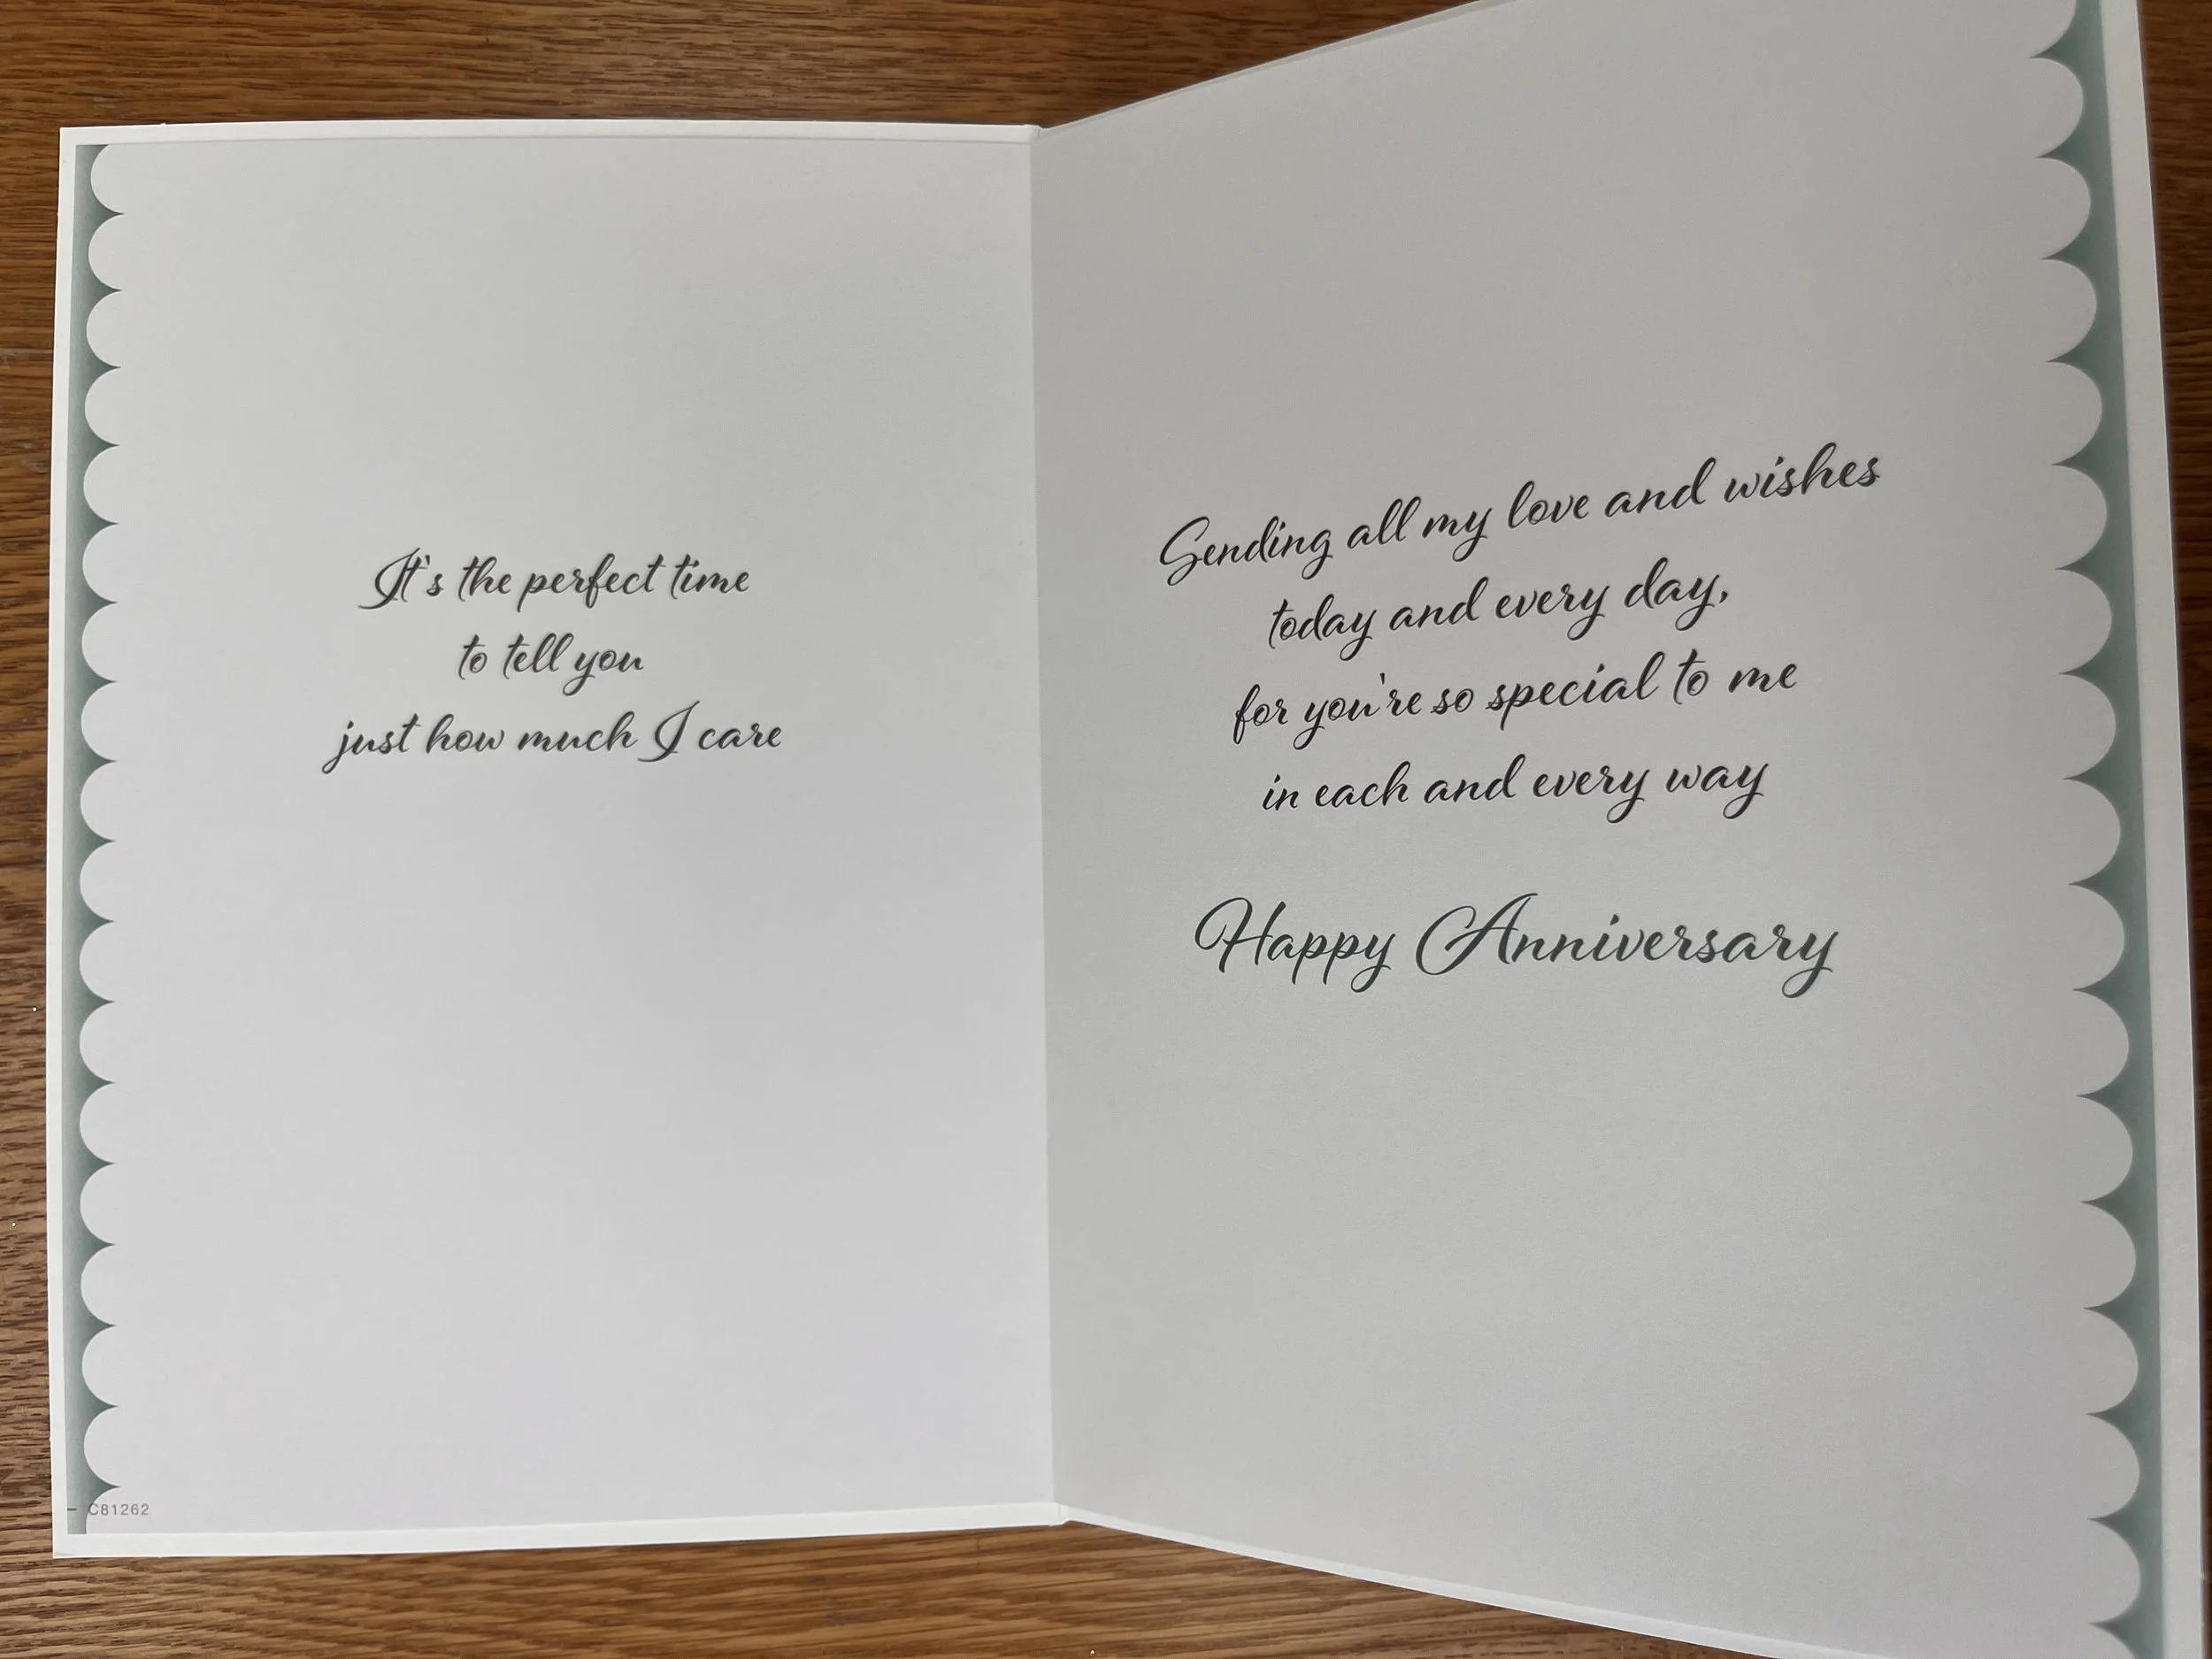 It's the perfect time
to tell you
just how much I care
C81262
Sending all my love and wishes
today and every day,
for you're so special to me
in each and every way
Happy Anniversary